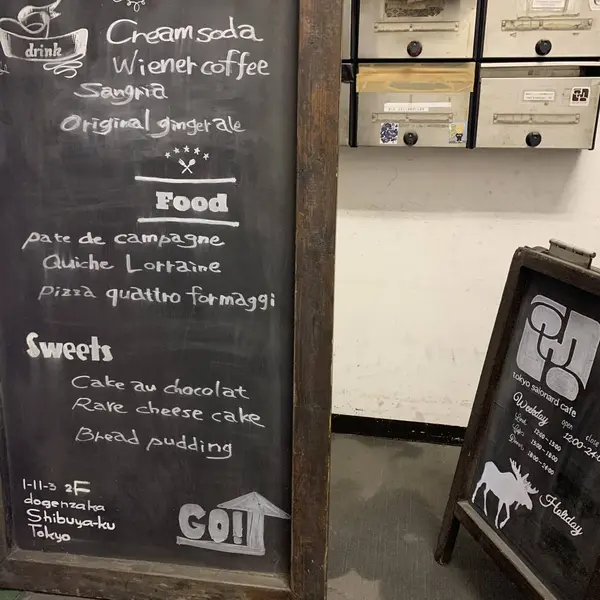 drink
Cream soda
Wiener coffee
Sangria
Original ginger ale
Food
pate de campagne
Quiche Lorraine
pizza quattro formaggi
Sweets
Cake au chocolat
Rare cheese cake
Bread pudding
1-11-3 2F
dogenzaka
Shibuya-ku
Tokyo
GO!
tokyo salonard cafe
Weekday
open
close
12:00-24:0
12:00-15:00
15:00-18:00
18:00-24:00
Holiday